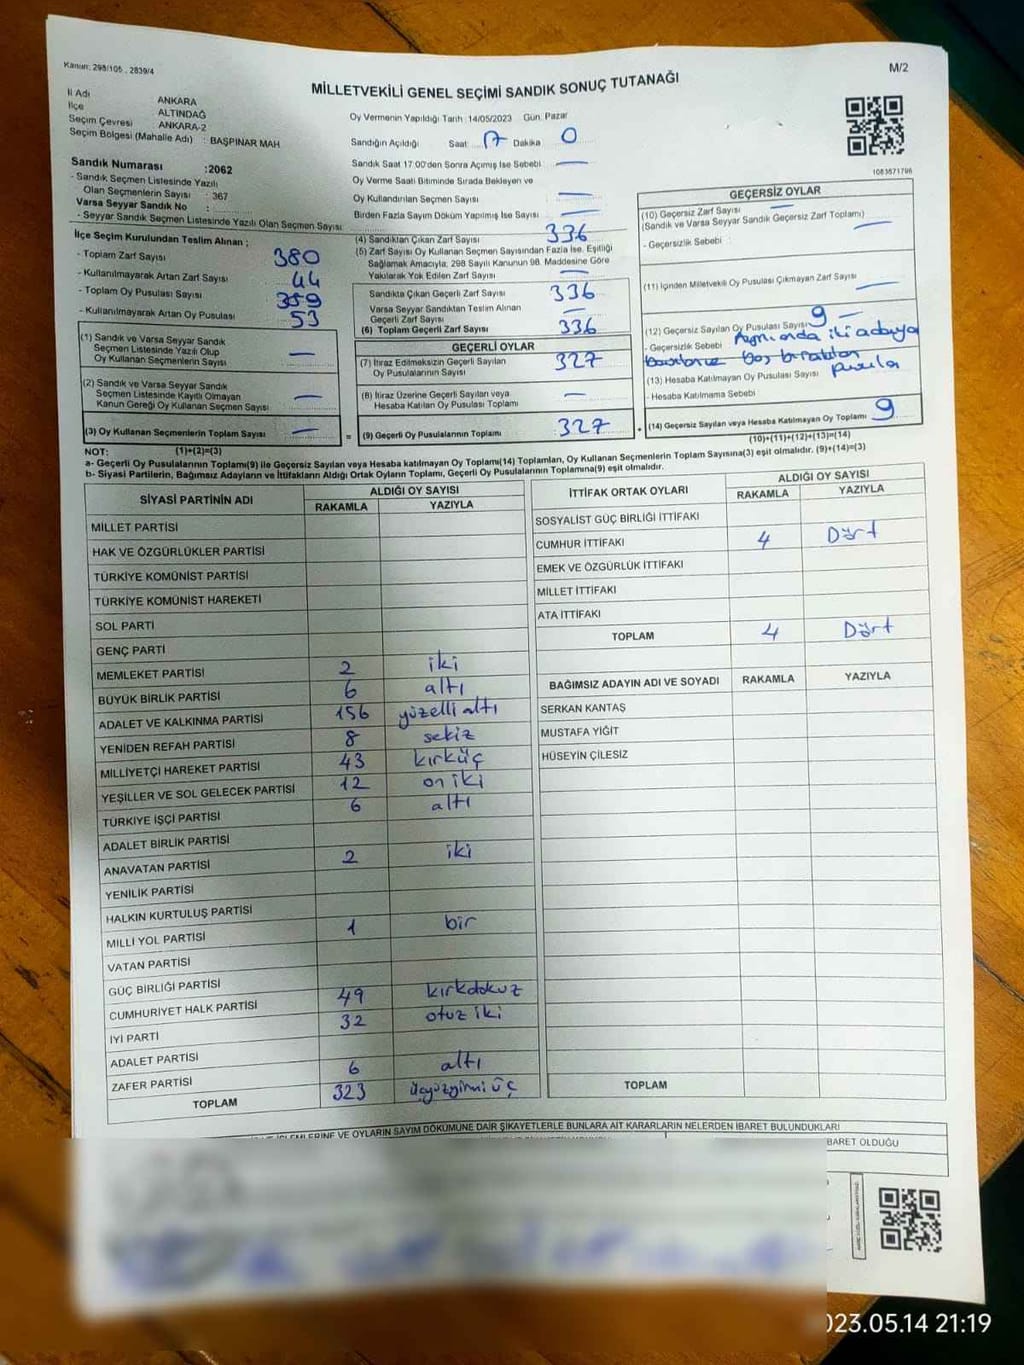 Kanun: 298/105 , 2839/4
M/2
MİLLETVEKİLİ GENEL SEÇİMİ SANDIK SONUÇ TUTANAĞI
İl Adı ANKARA
İlçe ALTINDAĞ
Seçim Çevresi ANKARA-2
Seçim Bölgesi (Mahalle Adı) : BAŞPINAR MAH
Sandık Numarası :2062
- Sandık Seçmen Listesinde Yazılı
Olan Seçmenlerin Sayısı : 367
Varsa Seyyar Sandık No :
- Seyyar Sandık Seçmen Listesinde Yazılı Olan Seçmen Sayısı:
Oy Vermenin Yapıldığı Tarih 14/05/2023 Gün. Pazar
Sandığın Açıldığı Saat 17 Dakika 0
Sandık Saat 17:00'den Sonra Açımış İse Sebebi —
Oy Verme Saati Bitiminde Sırada Bekleyen ve
Oy Kullandırılan Seçmen Sayısı —
Birden Fazla Sayım Döküm Yapılmış İse Sayısı —
1083671796
İlçe Seçim Kurulundan Teslim Alınan ;
- Toplam Zarf Sayısı 380
- Kullanılmayarak Artan Zarf Sayısı 44
- Toplam Oy Pusulası Sayısı 389
- Kullanılmayarak Artan Oy Pusulası 53
(1) Sandık ve Varsa Seyyar Sandık
Seçmen Listesinde Yazılı Olup
Oy Kullanan Seçmenlerin Sayısı —
(2) Sandık ve Varsa Seyyar Sandık
Seçmen Listesinde Kayıtlı Olmayan
Kanun Gereği Oy Kullanan Seçmen Sayısı —
(3) Oy Kullanan Seçmenlerin Toplam Sayısı —
(4) Sandıktan Çıkan Zarf Sayısı 336
(5) Zarf Sayısı Oy Kullanan Seçmen Sayısından Fazla İse, Eşitliği
Sağlamak Amacıyla, 298 Sayılı Kanunun 98. Maddesine Göre
Yakılarak Yok Edilen Zarf Sayısı —
Sandıkta Çıkan Geçerli Zarf Sayısı 336
Varsa Seyyar Sandıktan Teslim Alınan
Geçerli Zarf Sayısı —
(6) Toplam Geçerli Zarf Sayısı 336
GEÇERLİ OYLAR
(7) İtiraz Edilmeksizin Geçerli Sayılan
Oy Pusulalarının Sayısı 327
(8) İtiraz Üzerine Geçerli Sayılan veya
Hesaba Katılan Oy Pusulası Toplamı —
= (9) Geçerli Oy Pusulalarının Toplamı 327
GEÇERSİZ OYLAR
(10) Geçersiz Zarf Sayısı —
(Sandık ve Varsa Seyyar Sandık Geçersiz Zarf Toplamı) —
- Geçersizlik Sebebi :
(11) İçinden Milletvekili Oy Pusulası Çıkmayan Zarf Sayısı —
(12) Geçersiz Sayılan Oy Pusulası Sayısı 9 —
- Geçersizlik Sebebi Aynı anda iki adaya
boş bırakılan
(13) Hesaba Katılmayan Oy Pusulası Sayısı pusula
- Hesaba Katılmama Sebebi
+ (14) Geçersiz Sayılan veya Hesaba Katılmayan Oy Toplamı 9
NOT: (1)+(2)=(3)
(10)+(11)+(12)+(13)=(14)
a- Geçerli Oy Pusulalarının Toplamı(9) ile Geçersiz Sayılan veya Hesaba katılmayan Oy Toplamı(14) Toplamları, Oy Kullanan Seçmenlerin Toplam Sayısına(3) eşit olmalıdır. (9)+(14)=(3)
b- Siyasi Partilerin, Bağımsız Adayların ve İttifakların Aldığı Ortak Oyların Toplamı, Geçerli Oy Pusulalarının Toplamına(9) eşit olmalıdır.
SİYASİ PARTİNİN ADI ALDIĞI OY SAYISI
RAKAMLA YAZIYLA
MİLLET PARTİSİ
HAK VE ÖZGÜRLÜKLER PARTİSİ
TÜRKİYE KOMÜNİST PARTİSİ
TÜRKİYE KOMÜNİST HAREKETİ
SOL PARTİ
GENÇ PARTİ
MEMLEKET PARTİSİ 2 iki
BÜYÜK BİRLİK PARTİSİ 6 altı
ADALET VE KALKINMA PARTİSİ 156 yüzelli altı
YENİDEN REFAH PARTİSİ 8 sekiz
MİLLİYETÇİ HAREKET PARTİSİ 43 kırküç
YEŞİLLER VE SOL GELECEK PARTİSİ 12 on iki
TÜRKİYE İŞÇİ PARTİSİ 6 altı
ADALET BİRLİK PARTİSİ
ANAVATAN PARTİSİ 2 iki
YENİLİK PARTİSİ
HALKIN KURTULUŞ PARTİSİ
MİLLİ YOL PARTİSİ 1 bir
VATAN PARTİSİ
GÜÇ BİRLİĞİ PARTİSİ
CUMHURİYET HALK PARTİSİ 49 kırkdokuz
İYİ PARTİ 32 otuz iki
ADALET PARTİSİ
ZAFER PARTİSİ 6 altı
TOPLAM 323 üçyüzyirmi üç
İTTİFAK ORTAK OYLARI ALDIĞI OY SAYISI
RAKAMLA YAZIYLA
SOSYALİST GÜÇ BİRLİĞİ İTTİFAKI
CUMHUR İTTİFAKI 4 Dört
EMEK VE ÖZGÜRLÜK İTTİFAKI
MİLLET İTTİFAKI
ATA İTTİFAKI
TOPLAM 4 Dört
BAĞIMSIZ ADAYIN ADI VE SOYADI RAKAMLA YAZIYLA
SERKAN KANTAŞ
MUSTAFA YİĞİT
HÜSEYİN ÇİLESİZ
TOPLAM
İŞLEMLERİNE VE OYLARIN SAYIM DÖKÜMÜNE DAİR ŞİKAYETLERLE BUNLARA AİT KARARLARIN NELERDEN İBARET BULUNDUKLARI
BARET OLDUĞU
023.05.14 21:19